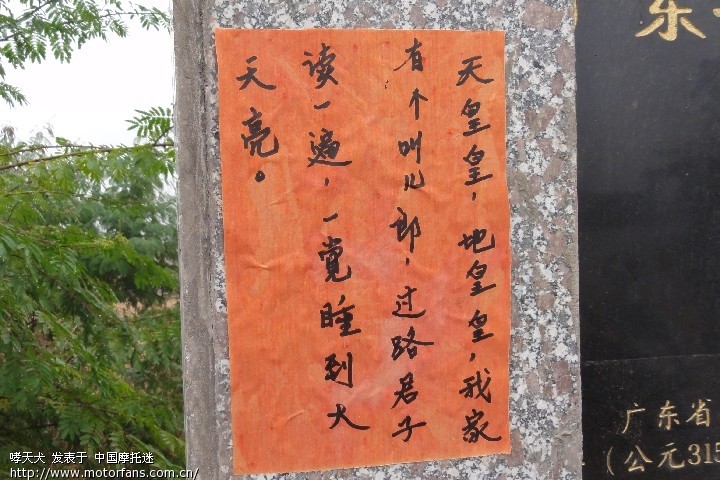 天皇皇，地皇皇，我家
有个叫儿郎，过路君子
读一遍，一觉睡到大
天亮。
东
广东省
（公元315
哮天犬 发表于 中国摩托迷
http://www.motorfans.com.cn/